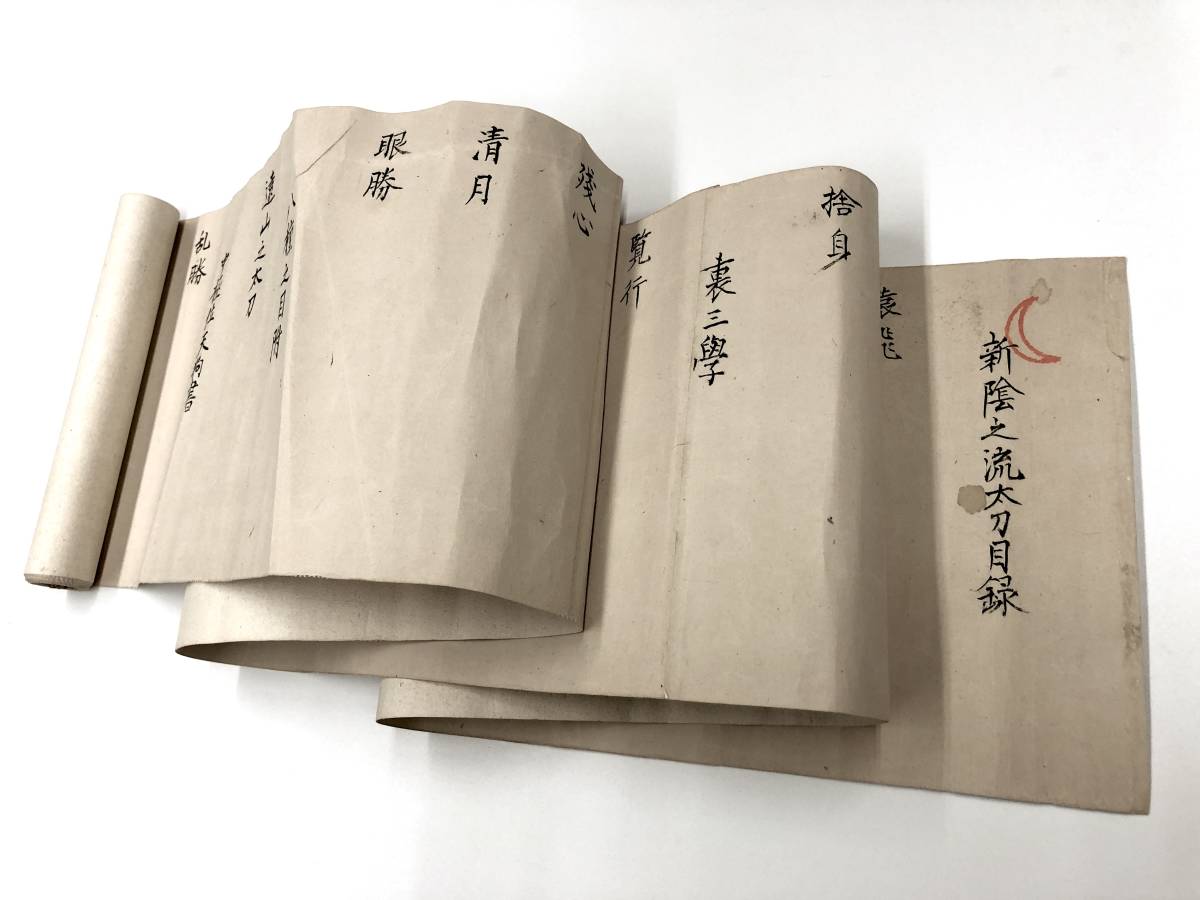 新陰之流太刀目録
猿飛
捨身
裏三學
覧行
残心
清月
眼勝
八種之目附
遠山之太刀
乱勝